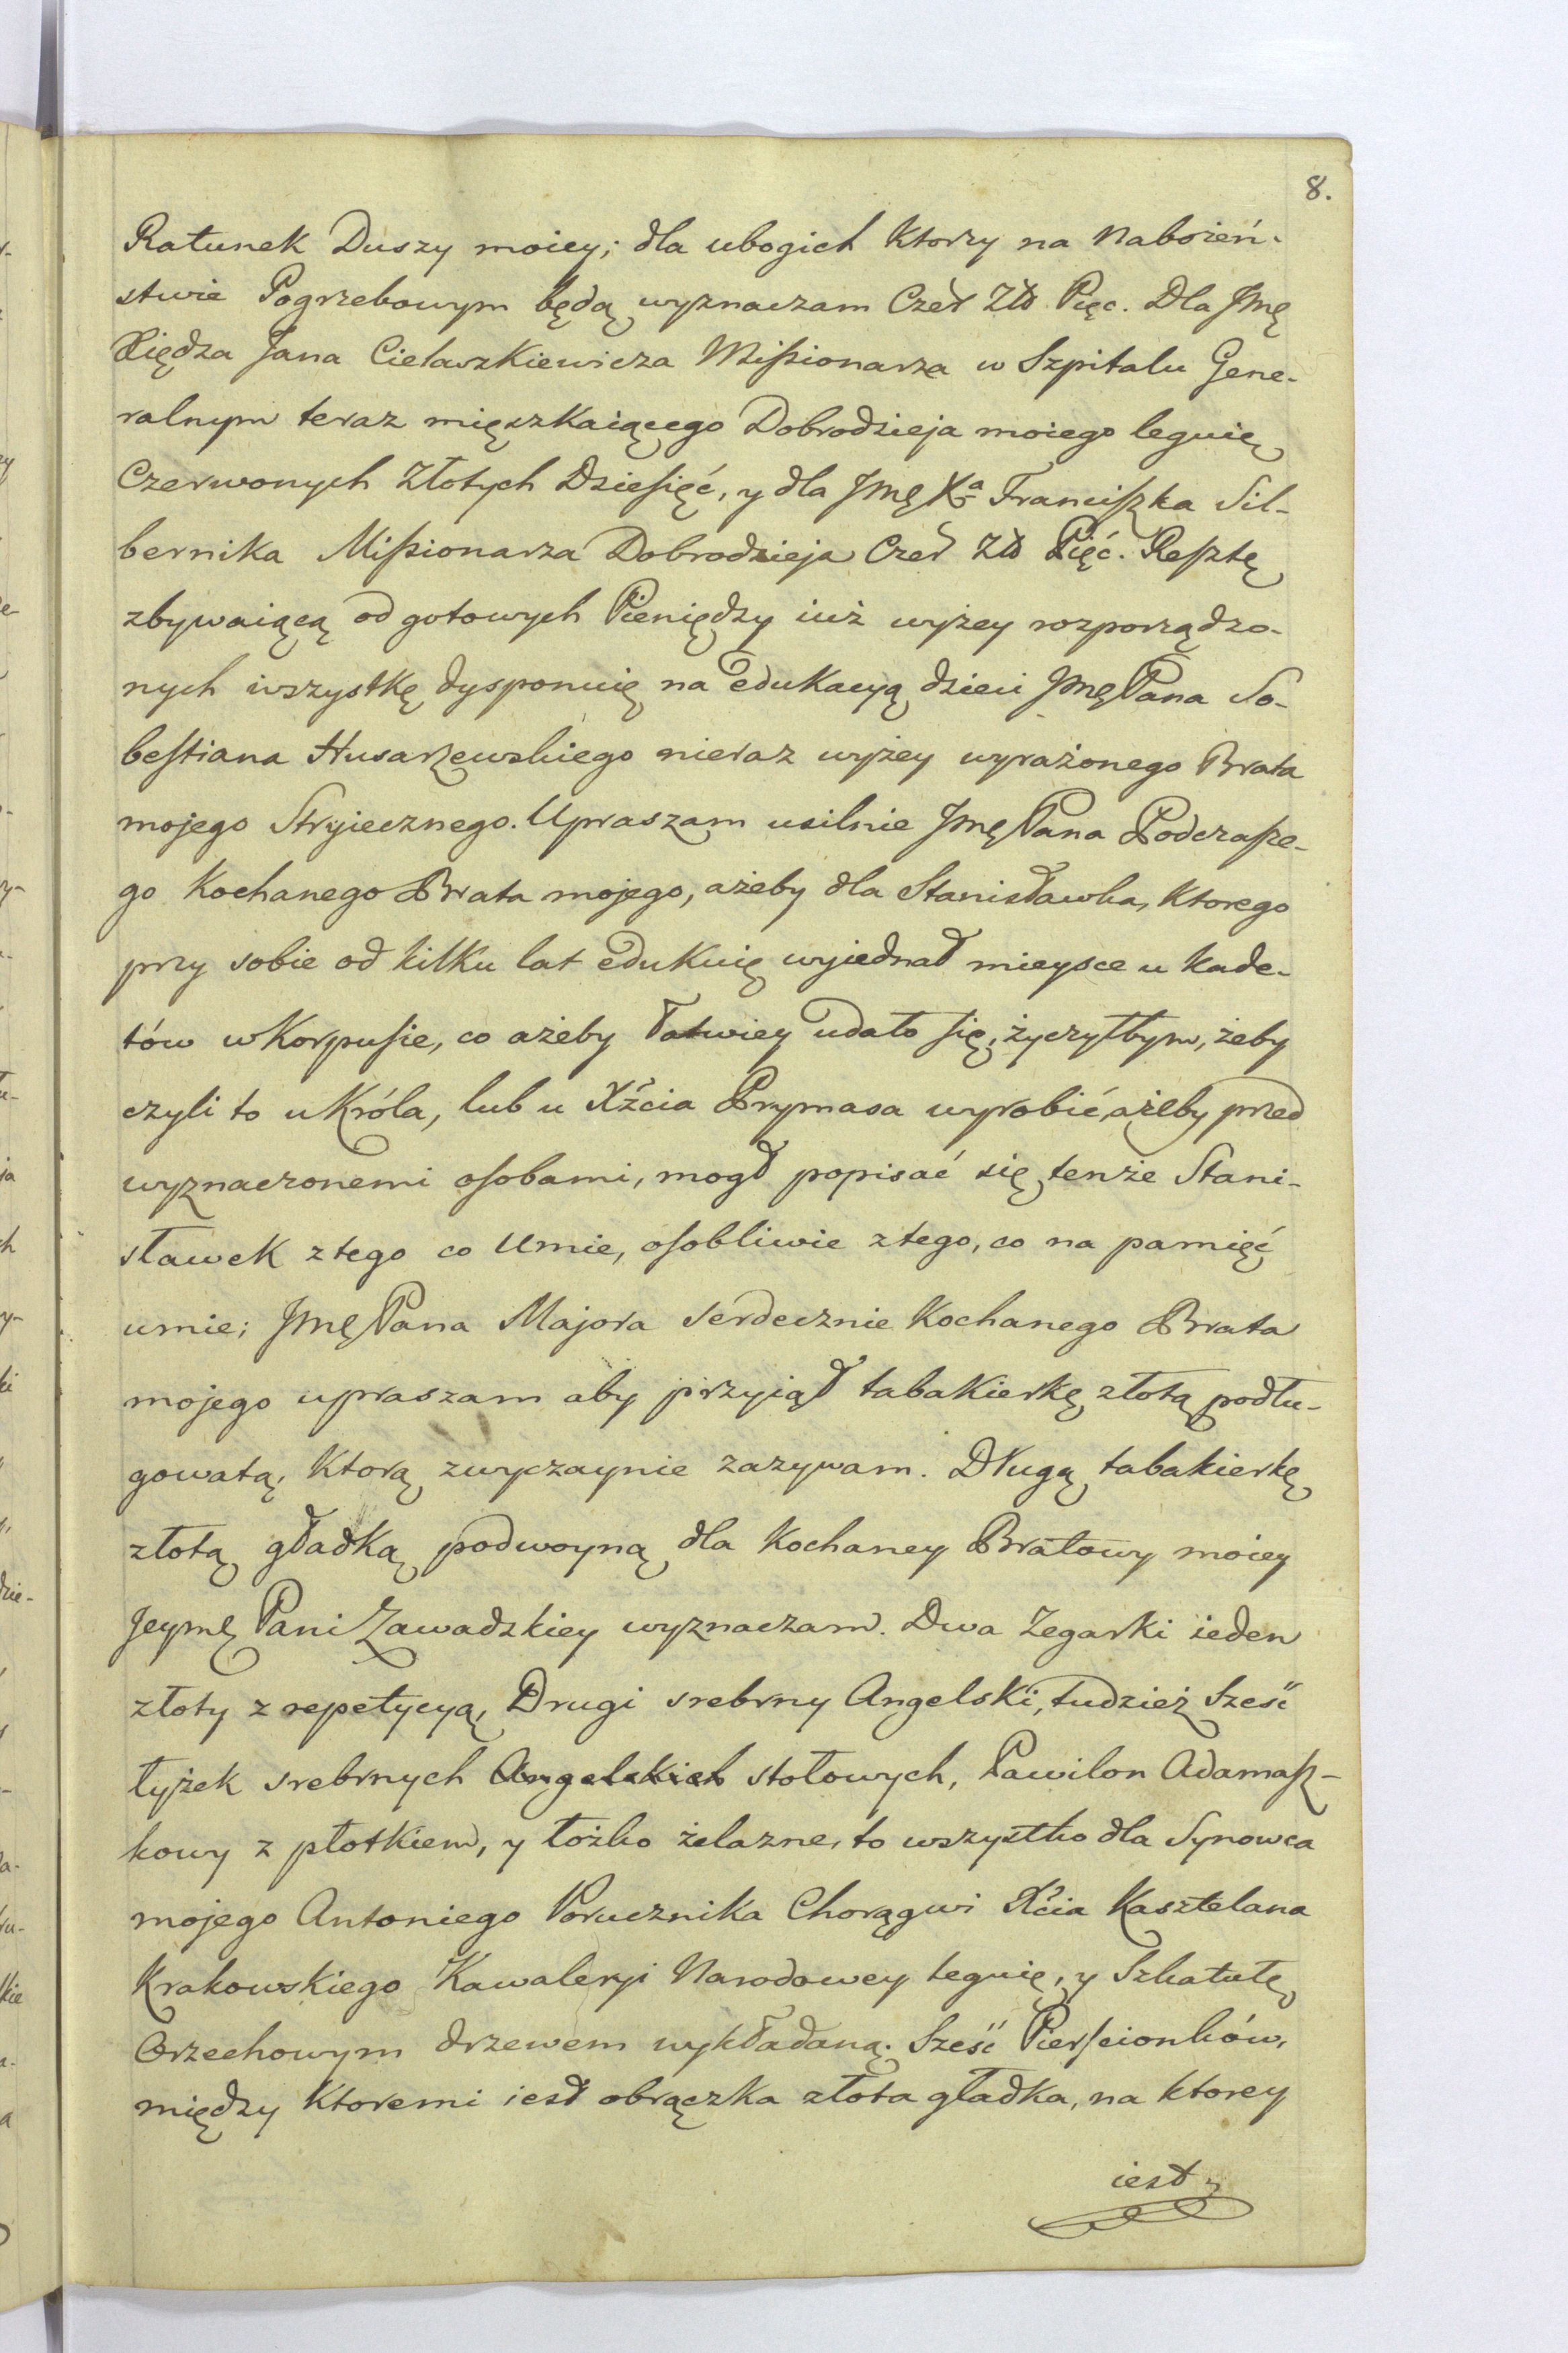 8.
Ratunek Duszy moiey; dla ubogich Ktorzy na Nabożeń-
stwie Pogrzebowym będą wyznaczam Czer Zło Pięc. Dla Jmę
Xiędza Jana Cieławszkiewicza Missionarza w Szpitalu Gene-
ralnym teraz mięszkaiącego Dobrodzieja moiego leguię
Czerwonych Złotych Dziesięć, y dla Jmę Xa Franciszka Sil-
bernika Missionarza Dobrodzieja Czer Zło Pięć. Resztę
zbywaiącą od gotowych Pieniędzy iuż wyżey rozporządzo-
nych wszystkę dysponuię na edukacyą dzieci Jmę Pana So-
bestiana Husarzewskiego nieraz wyżey wyrażonego Brata
mojego Stryiecznego. Upraszam usilnie Jmę Pana Podczasze-
go Kochanego Brata mojego, ażeby dla Stanisławka, Ktorego
przy sobie od kilku lat edukuię wyiednał mieysce u Kade-
tów w Korpusie, co ażeby łatwiey udało się, życzyłbym, żeby
czyli to u Króla, lub u Xżcia Prymasa wyrobić, ażeby przed
wyznaczonemi osobami, mogł popisać się tenże Stani-
sławek z tego co Umie, osobliwie z tego, co na pamięć
umie; Jmę Pana Majora Serdecznie Kochanego Brata
mojego upraszam aby przyiął tabakierkę złotą podłu-
gowatą, Ktorą zwyczaynie zazywam. Długą tabakierkę
złotą gładką podwoyną dla Kochaney Bratowy moiey
Jeymę Pani Zawadzkiey wyznaczam. Dwa Zegarki ieden
złoty z repetycyą, Drugi srebrny Angelski, tudzież Sześć
łyżek srebrnych Angelskich stołowych, Pawilon Adamasz-
kowy z płotkiem, y łożko żelazne, to wszystko dla Synowca
mojego Antoniego Porucznika Chorągwi Xcia Kasztelana
Krakowskiego Kawaleryi Narodowey leguię, y Szkatułę
Orzechowym drzewem wykładaną. Sześć Pierscionków,
między Ktoremi iest obrączka złota gładka, na ktorey
iest